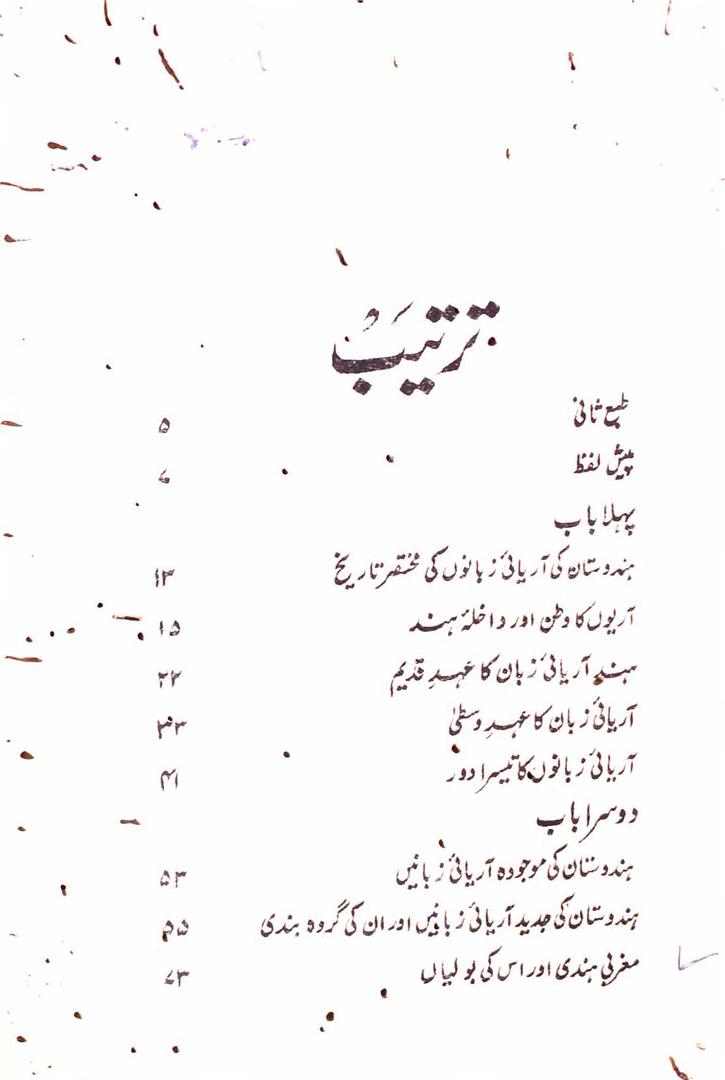 ترتیب
طبع ثانی ۵
پیش لفظ ۷
پہلا باب
ہندوستان کی آریائی زبانوں کی مختصر تاریخ ۱۳
آریوں کا وطن اور داخلۂ ہند ۱۵
ہند آریائی زبان کا عہدِ قدیم ۲۲
آریائی زبان کا عہدِ وسطیٰ ۳۳
آریائی زبانوں کا تیسرا دور ۴۱
دوسرا باب
ہندوستان کی موجودہ آریائی زبانیں ۵۳
ہندوستان کی جدید آریائی زبانیں اور ان کی گروہ بندی ۵۵
مغربی ہندی اور اس کی بولیاں ۷۳